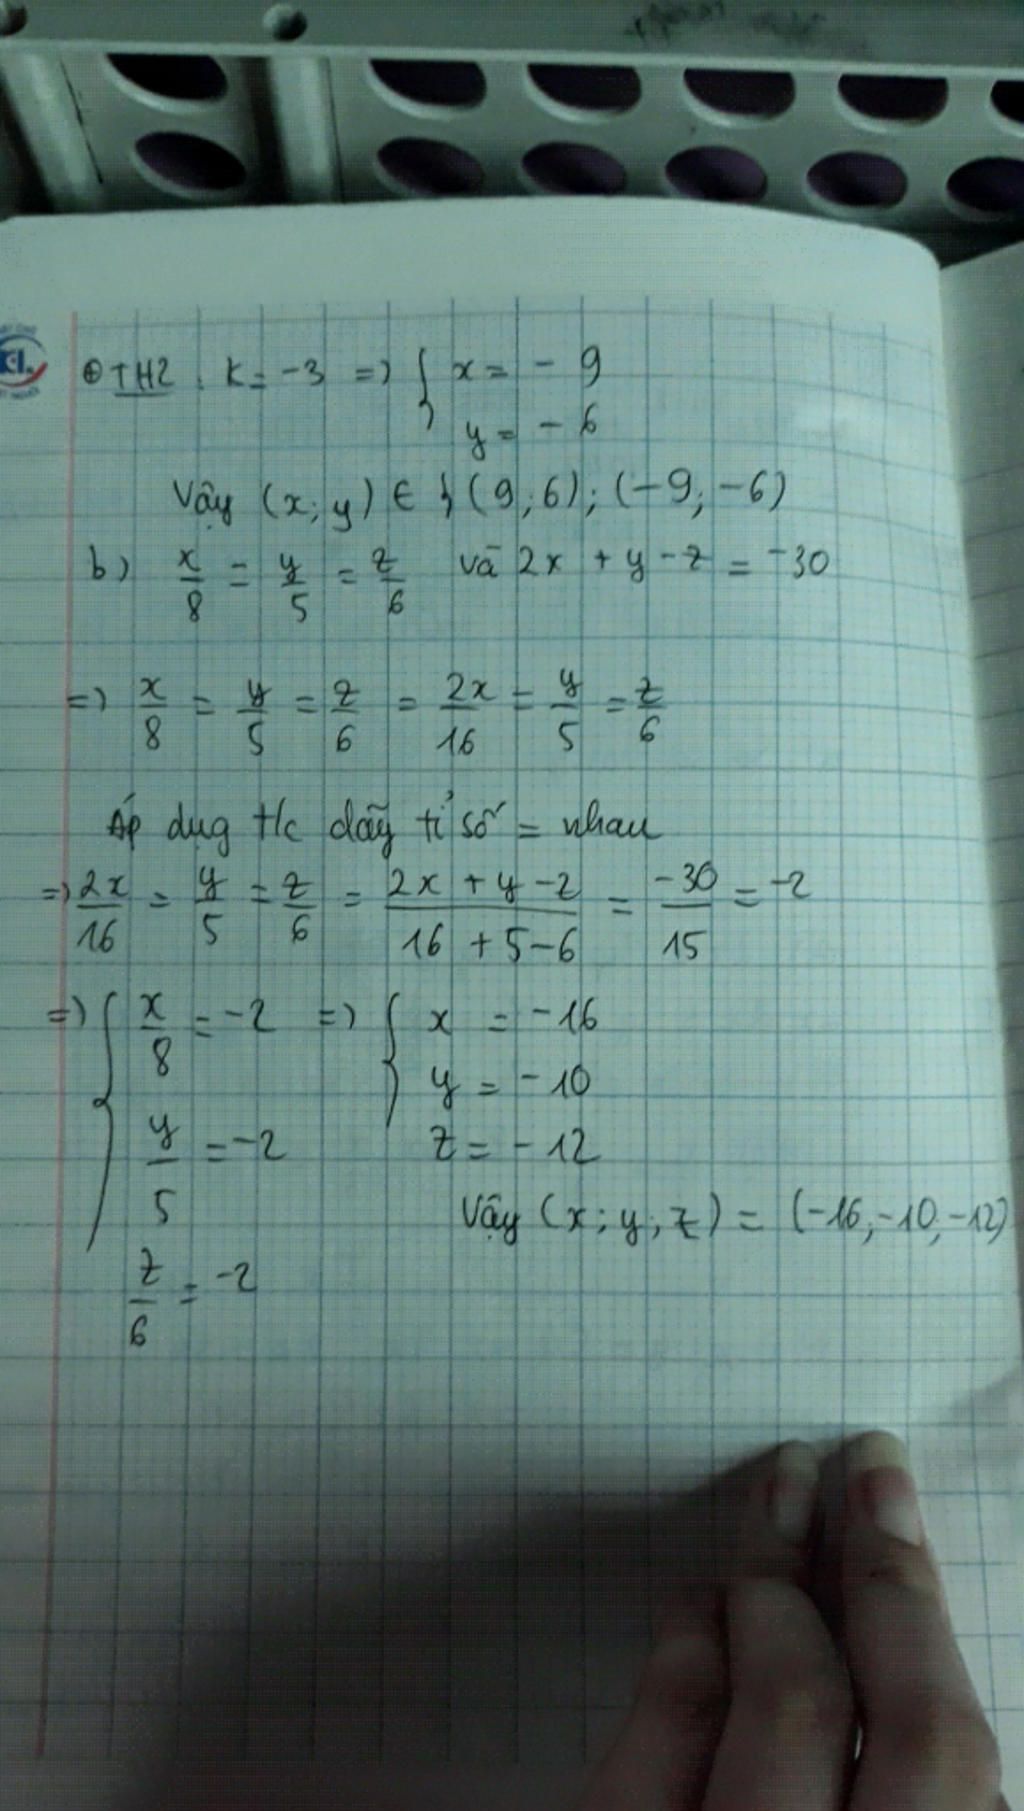 ⊕ TH2 : K = -3 => { x = - 9
y = - 6
Vậy (x; y) ∈ { (9; 6); (-9; -6)
b) x/8 = y/5 = z/6 và 2x + y - z = -30
=> x/8 = y/5 = z/6 = 2x/16 = y/5 = z/6
Áp dụg t/c dãy tỉ số = nhau
=> 2x/16 = y/5 = z/6 = (2x + y - z)/(16 + 5 - 6) = -30/15 = -2
=> { x/8 = -2 => { x = -16
y = - 10
y/5 = -2 z = - 12
Vậy (x; y; z) = (-16; -10; -12)
z/6 = -2